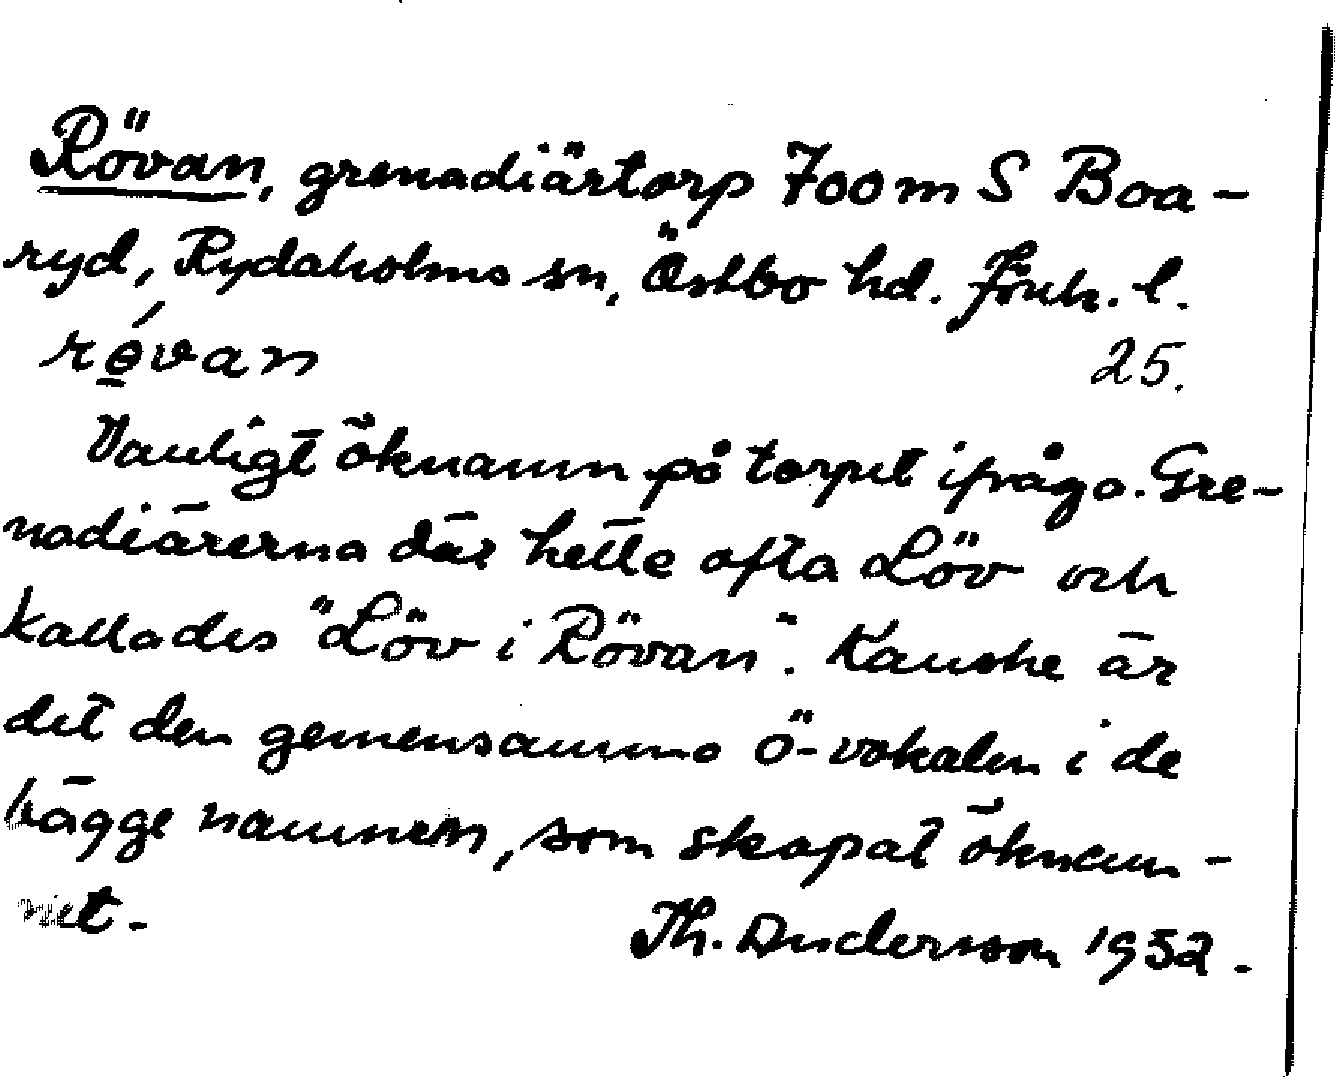 Rövan, grenadiärtorp 700 m S Boa-
ryd, Rydaholms sn, Östbo hd. Jönk. l.
rө́van 25.
Vanligt öknamn på torpet ifråga. Gre-
nadiärerna där hette ofta Löv och
kallades "Löv i Rövan". Kanske är
det den gemensamma ö-vokalen i de
bägge namnen, som skapat öknam-
net.
Th. Andersson 1932.